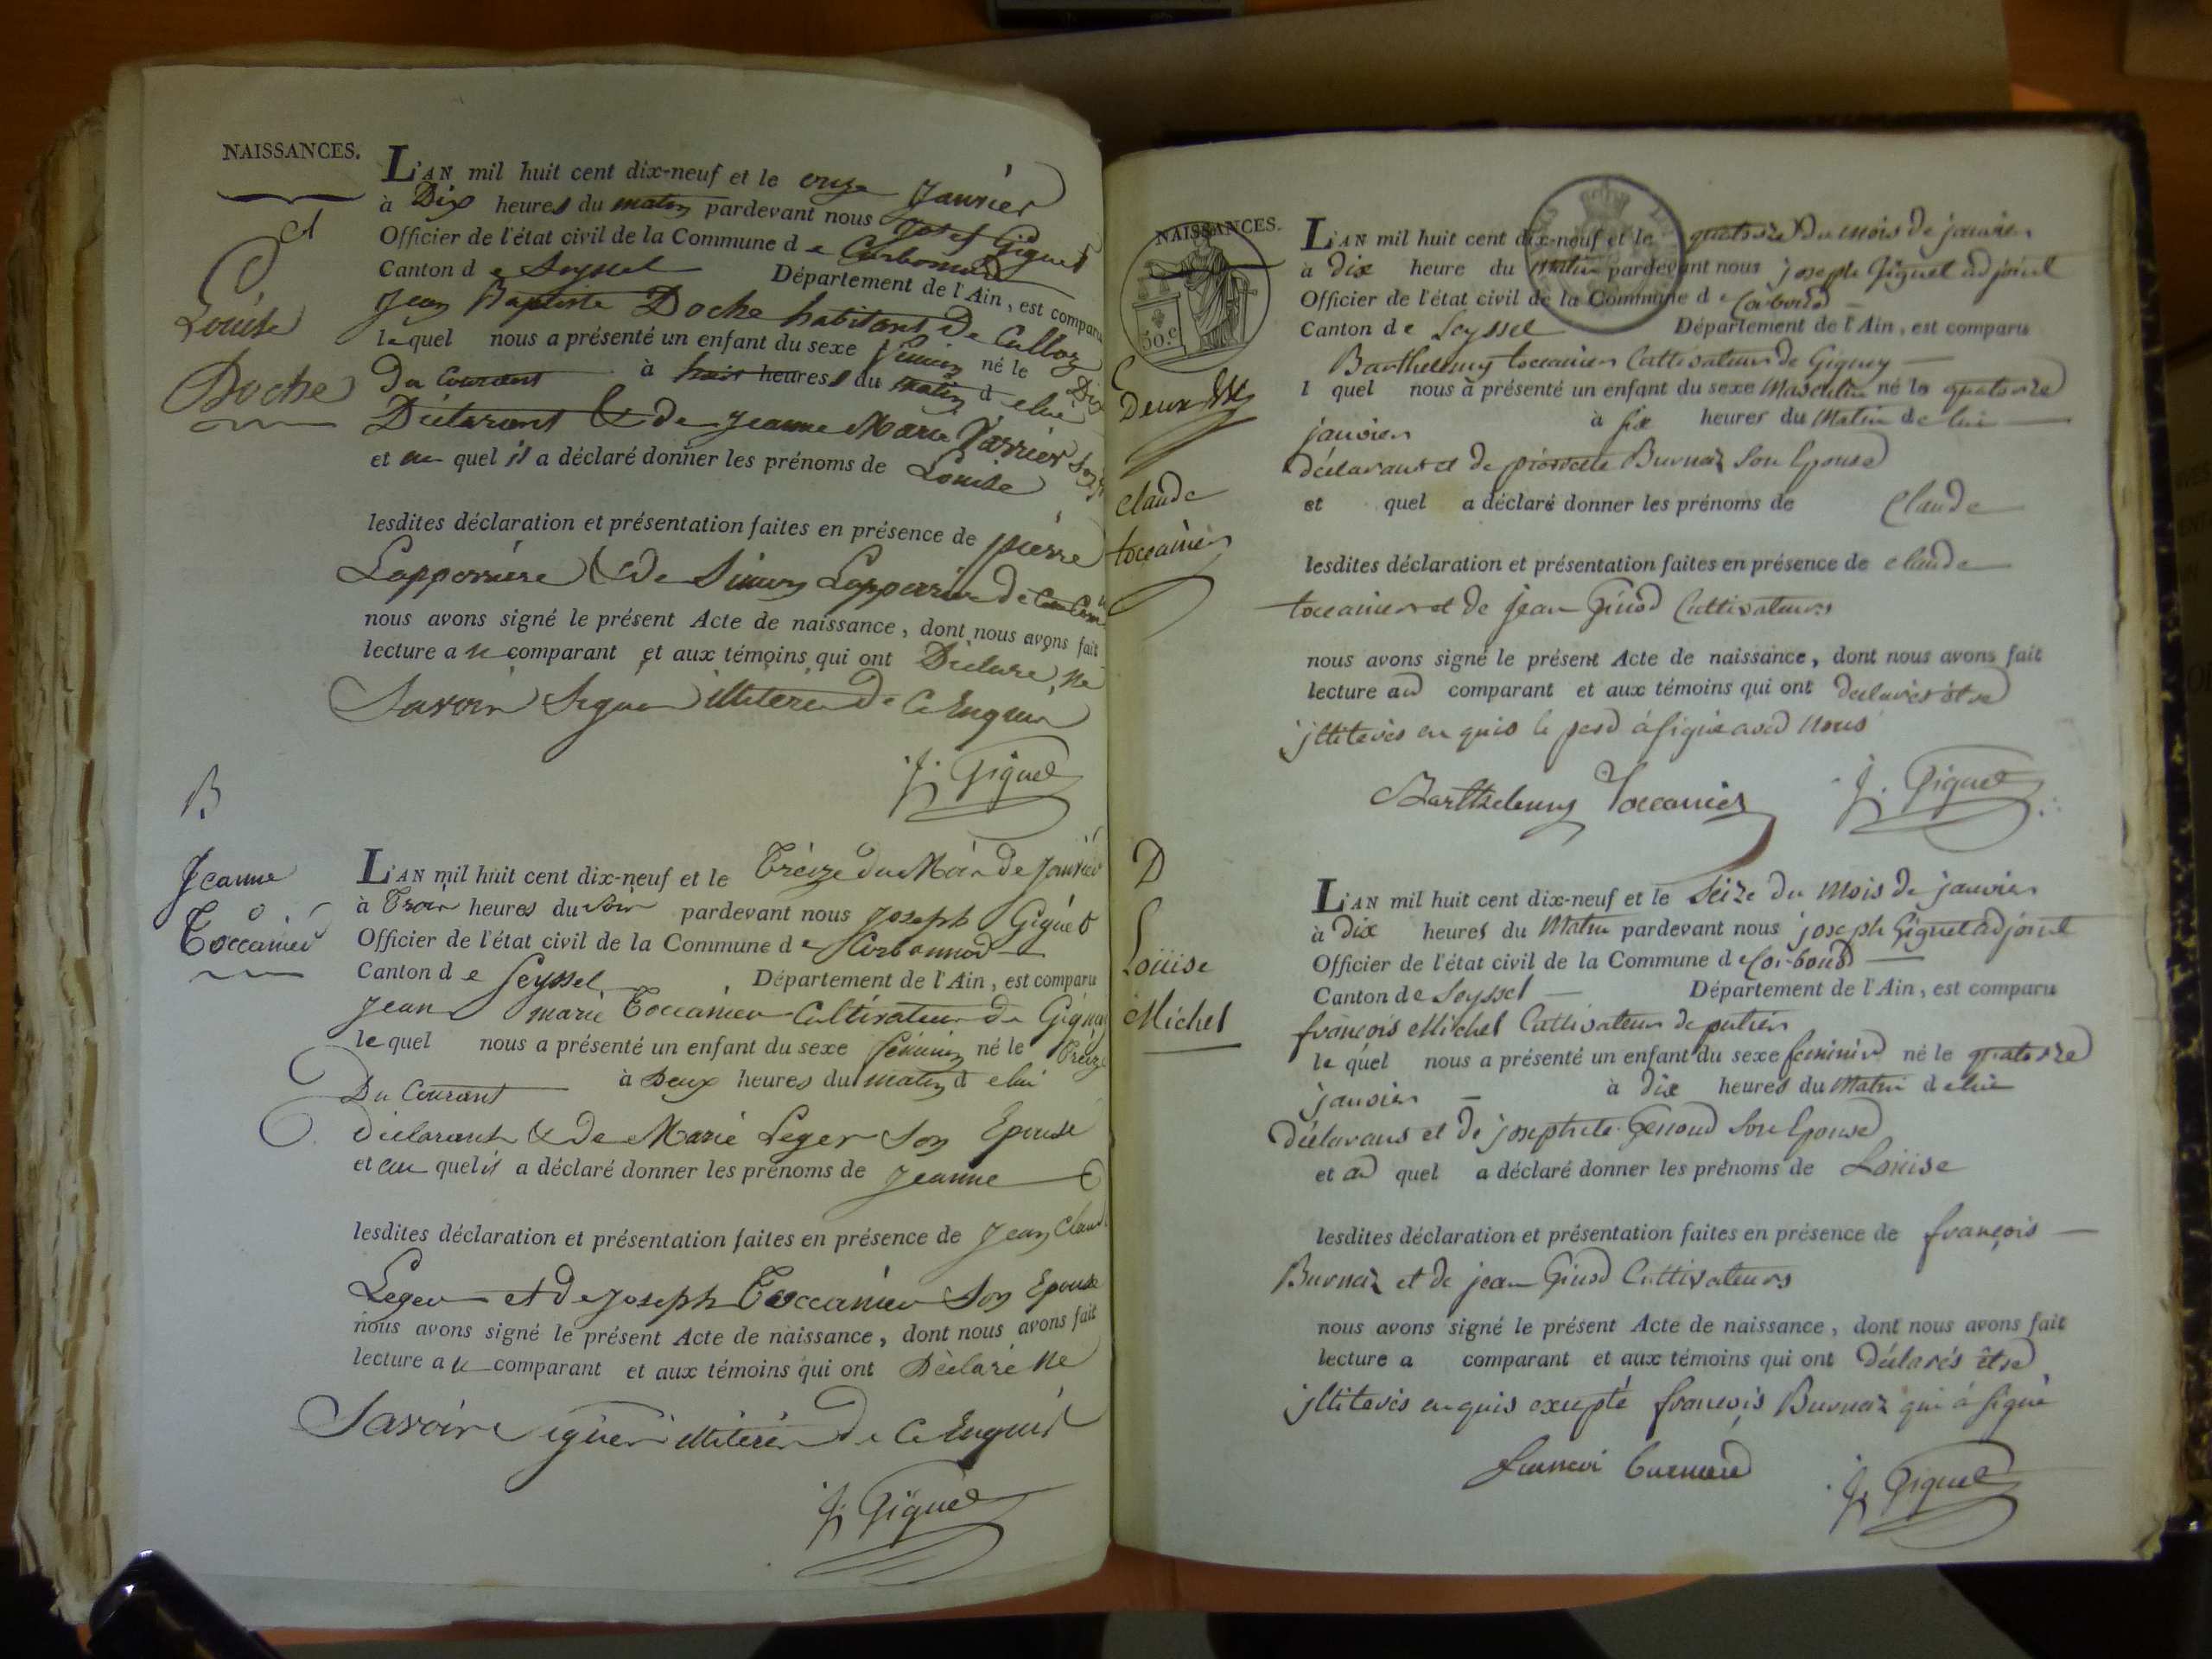 NAISSANCES.
L'AN mil huit cent dix-neuf et le onze Janvier
à Dix heures du matin pardevant nous Josef Giguet
Officier de l'état civil de la Commune de Corbonod
Canton de Seyssel Département de l'Ain, est comparu
Jean Baptiste Doche habitant de Culloz
lequel nous a présenté un enfant du sexe feminin né le Dix
Du Courant à huit heures du matin de lui
Déclarant & de Jeanne Marie
et au quel il a déclaré donner les prénoms de Louise
lesdites déclaration et présentation faites en présence de pierre
Lapperriere & de Simon Lapperriere de
nous avons signé le présent Acte de naissance, dont nous avons fait
lecture a u comparant et aux témoins qui ont Déclaré Ne
Savoir Signer illiteré De Ce Enquis
J. Giguet
A
Louise
Doche
B
Jeanne
Toccanier
L'AN mil huit cent dix-neuf et le Treize du Mois de Janvier
à Trois heures du soir pardevant nous Joseph Giguet
Officier de l'état civil de la Commune de Corbonnod
Canton de Seyssel Département de l'Ain, est comparu
Jean marie Toccanier Cultivateur de Gignez
lequel nous a présenté un enfant du sexe feminin né le Treize
Du Courant à Deux heures du matin de lui
déclarant & de Marie Leger Son Epouse
et au quel il a déclaré donner les prénoms de Jeanne
lesdites déclaration et présentation faites en présence de Jean Claude
Leger et de Joseph Toccanier Son Epouse
nous avons signé le présent Acte de naissance, dont nous avons fait
lecture au comparant et aux témoins qui ont Déclaré Ne
Savoir Signer illiteré De Ce Enquis
J. Giguet
NAISSANCES.
50.c
L'AN mil huit cent dix-neuf et le quatorze Du mois de janvier
à dix heure du Matin pardevant nous joseph Giguet adjoint
Officier de l'état civil de la Commune de Corbond
Canton de Seyssel Département de l'Ain, est comparu
Barthelemy toccanier Cultivateur de Gigney
l quel nous a présenté un enfant du sexe Masculin né le quatorze
janvier à six heures du Matin de lui
déclarant et de Burnaz Son Epouse
et quel a déclaré donner les prénoms de Claude
lesdites déclaration et présentation faites en présence de claude
toccanier et de jean Ginod Cultivateurs
nous avons signé le présent Acte de naissance, dont nous avons fait
lecture au comparant et aux témoins qui ont declarés être
illiterés enquis le pere à signé avec Nous
Barthelemy Toccanier J. Giguet
claude
toccanier
D
Louise
Michel
L'AN mil huit cent dix-neuf et le Seize du Mois de janvier
à dix heures du Matin pardevant nous joseph Giguet adjoint
Officier de l'état civil de la Commune de Corbond
Canton de Seyssel Département de l'Ain, est comparu
françois Michel Cultivateur de putier
le quel nous a présenté un enfant du sexe feminin né le quatorze
janvier à dix heures du Matin de lui
déclarans et de josephete Genoud Son Epouse
et au quel a déclaré donner les prénoms de Louise
lesdites déclaration et présentation faites en présence de françois
Burnaz et de jean Ginod Cultivateurs
nous avons signé le présent Acte de naissance, dont nous avons fait
lecture a comparant et aux témoins qui ont déclarés être
illiterés enquis exepté françois Burnaz qui à signé
J. Giguet